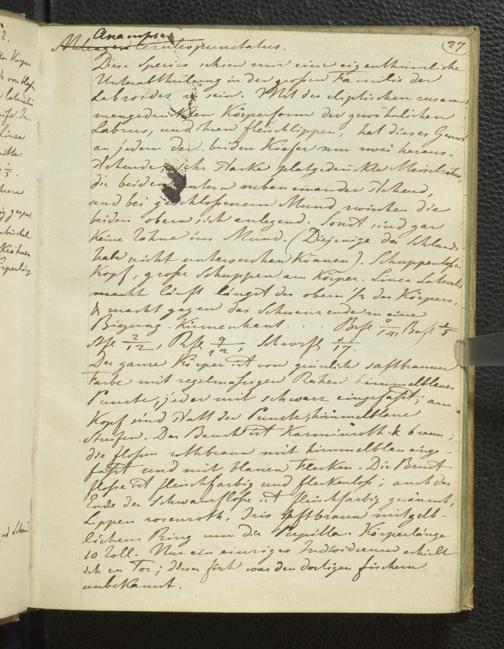 27
Anampses
caeruleopunctatus.
Diese Species schien mir eine eigenthümliche
Unterabtheilung in der großen Familie der
Labroides zu sein. Mit der eliptischen zusam-
mengedrückten Körperform der gewöhnlichen
Labrus, und ihren fleischlippen, hat dieses Genus
an jedem der beiden Kiefer nur zwei heraus-
stehende sehr starke platgedrückte
die beiden untern nebeneinander stehend,
und bei geschlossenem Mund zwischen die
beiden obern sich anlegend. Sonst sind gar
keine Zähne im Mund. (Diejenige des Schlundes
habe nicht untersuchen können). Schuppenloser
Kopf, große Schuppen am Körper. Linea Lateralis
macht läuft längst des obern 1/3 des Körpers,
& macht gegen das Schwanzende zu eine
Biegung. Kiemenhaut . . . Brfl
Afl 2/12, Rfl 9/12, Schwzfl 17.
Der ganze Körper ist von grünlich saftbrauner
Farbe mit regelmäßigen Reihen himmelblauer
Puncte, jeder mit schwarz eingefaßt; am
Kopf sind statt der Puncte, himmelblaue
Streifen. Der Bauch ist Karminroth & braun;
die floßen rothbraun mit himmelblau einge-
faßt und mit blauen Flecken. Die Brust
floße ist fleischfarbig und fleckenlos; auch das
Ende der Schwanzfloße ist fleischfarbig gesäumt,
Lippen rosenroth. Iris saftbraun mit gelb-
lichem Ring um die Pupille. Körperlänge
10 Zoll. Nur ein einziges Individuum erhielt
ich in Tor; dieser fisch war den dortigen fischern
unbekannt.